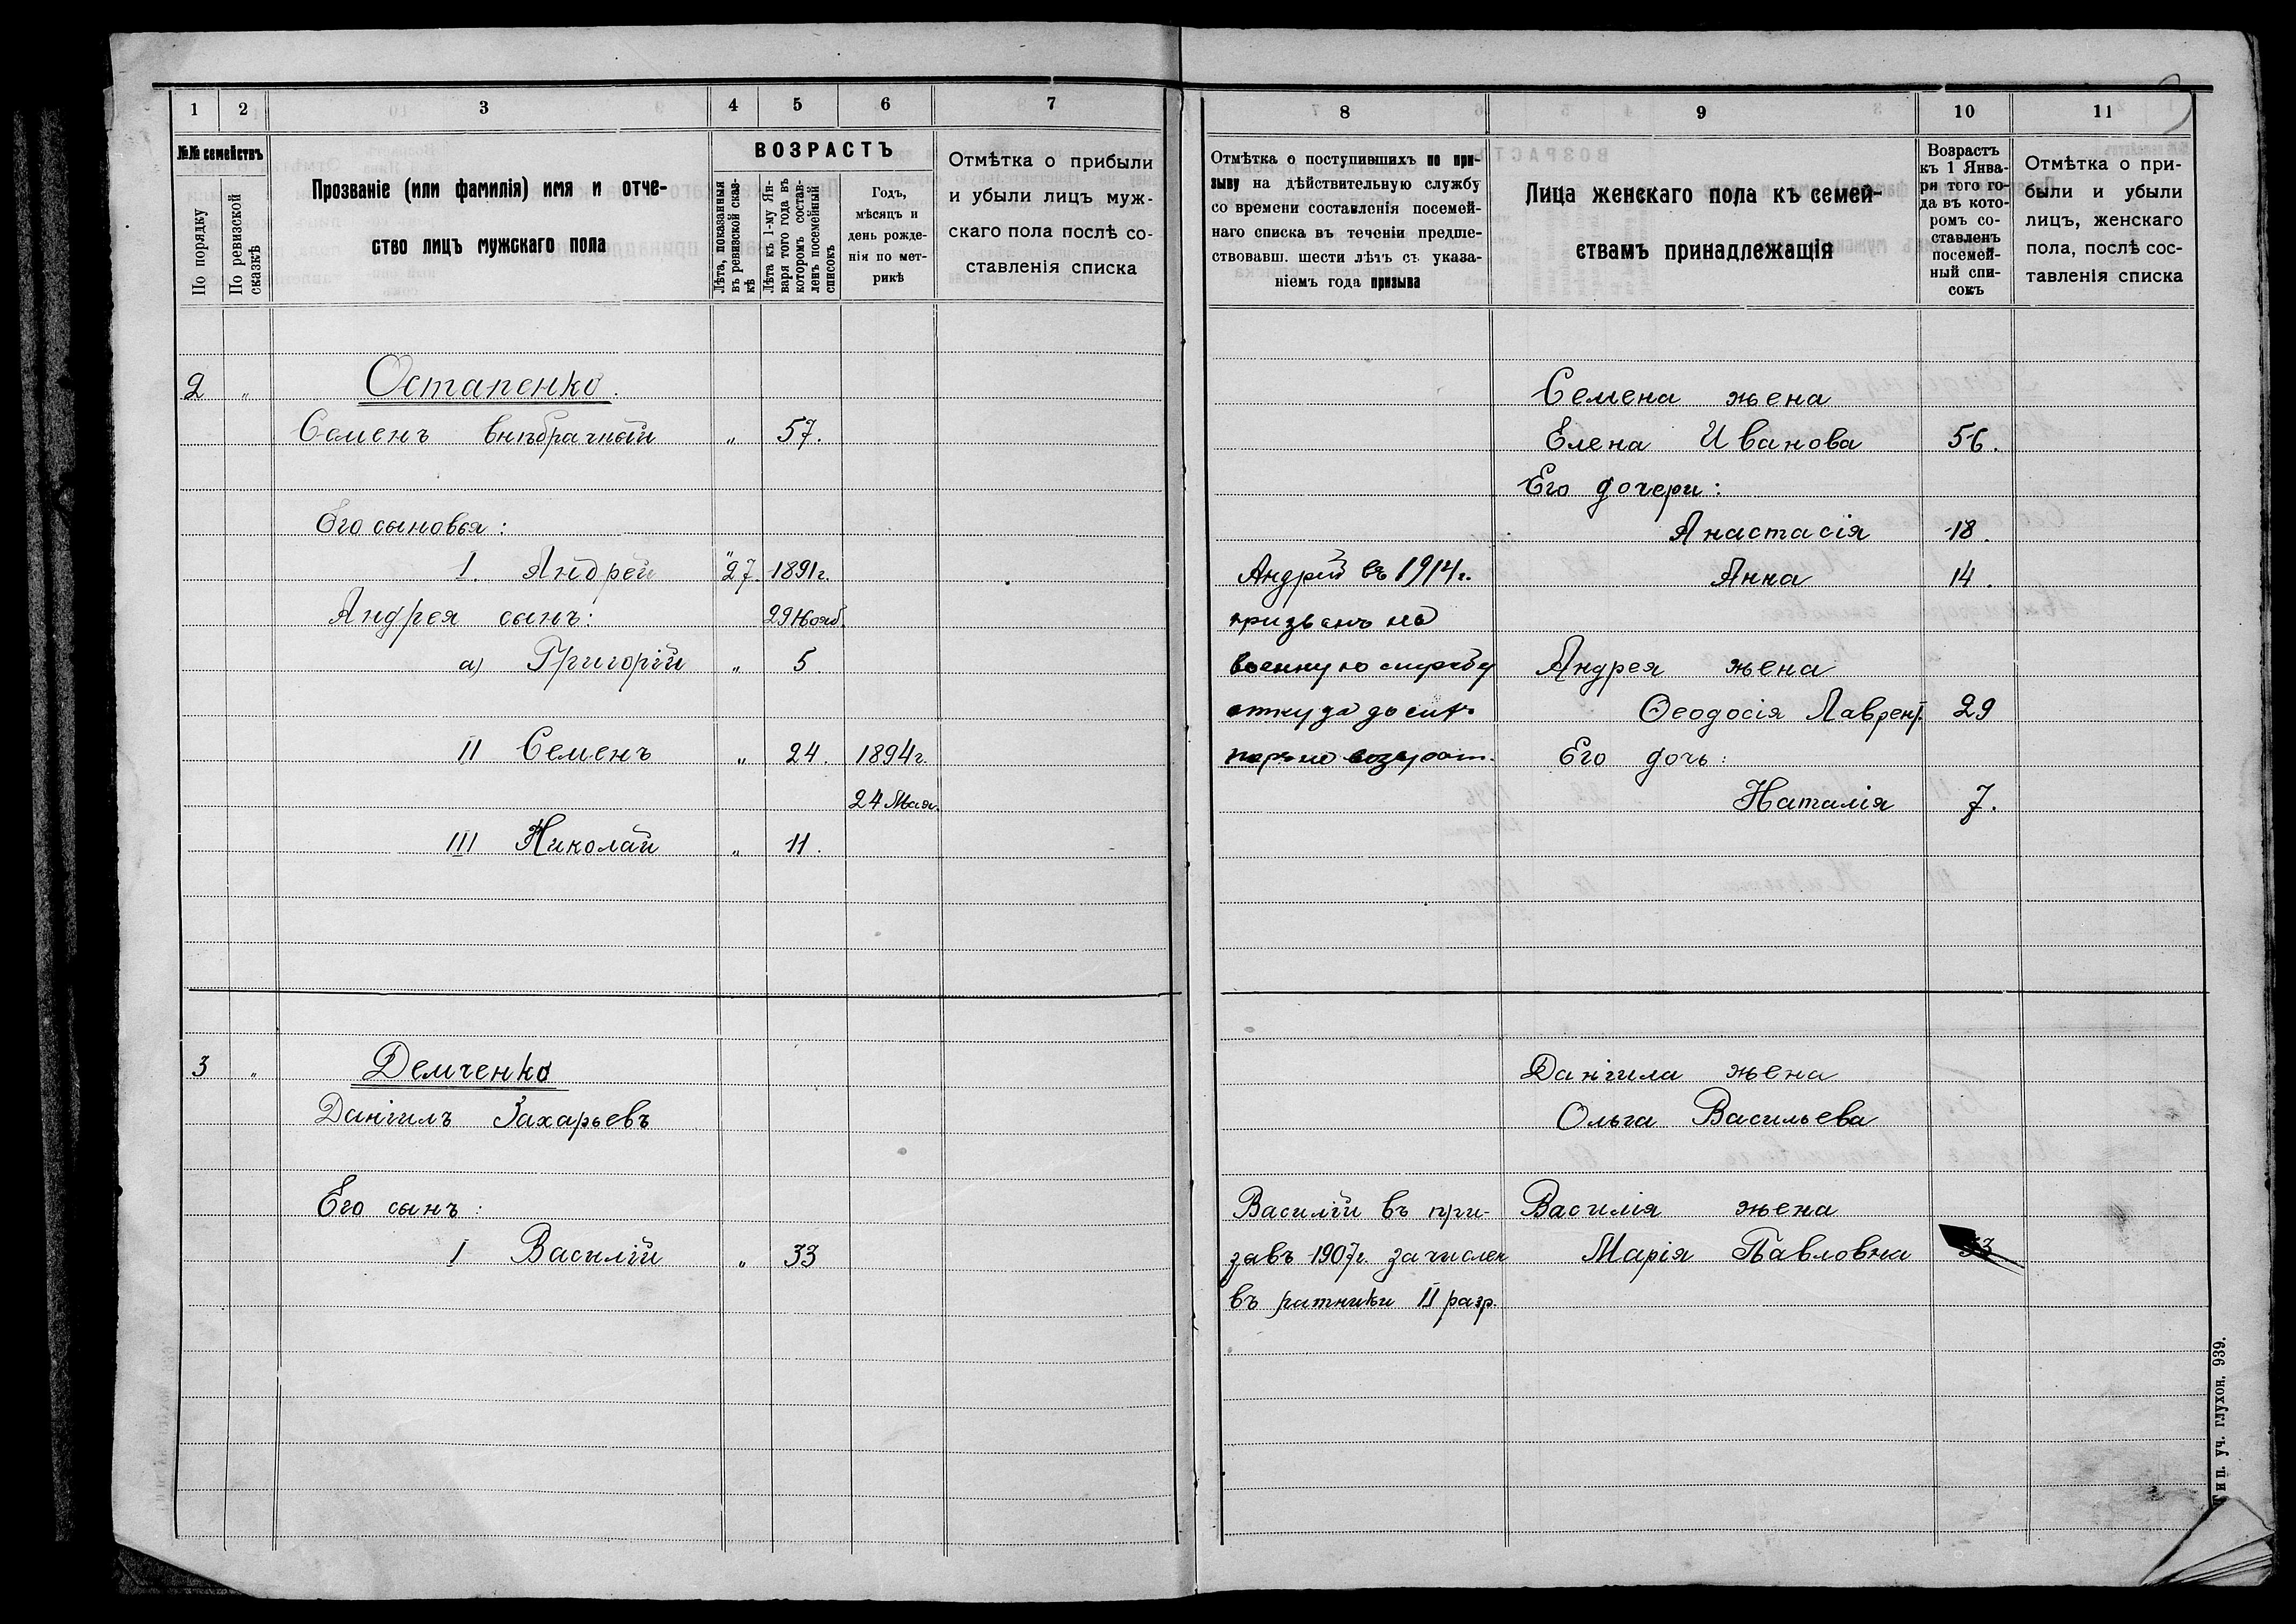 1 2 3 4 5 6 7
№№ семействъ
По порядку
По ревизской сказкѣ
Прозваніе (или фамилія) имя и отче-
ство лицъ мужскаго пола
ВОЗРАСТЪ
Лѣта, показанныя
въ ревизской сказ-
кѣ
Лѣта къ 1-му Ян-
варя того года въ
которомъ состав-
ленъ посемейный
списокъ
Годъ,
мѣсяцъ и
день рожде-
нія по мет-
рикѣ
Отмѣтка о прибыли
и убыли лицъ муж-
скаго пола послѣ со-
ставленія списка
2 " Остапенко.
Семенъ внѣбрачный " 57.
Его сыновья:
I. Андрей " 27. 1891г.
Андрея сынъ: 29 Нояб.
а) Григорій " 5.
II Семенъ " 24. 1894г.
24 Мая.
III Николай " 11.
3 " Демченко
Даніилъ Захарьевъ
Его сынъ:
I Василій " 33
8 9 10 11
Отмѣтка о поступившихъ по при-
зыву на дѣйствительную службу
со времени составленія посемей-
наго списка въ теченіи предше-
ствовавш. шести лѣтъ съ указа-
ніемъ года призыва
Лица женскаго пола къ семей-
ствамъ принадлежащія
Возрастъ
къ 1 Янва-
ря того го-
да въ кото-
ромъ со-
ставленъ
посемей-
ный спи-
сокъ
Отмѣтка о при-
были и убыли
лицъ, женскаго
пола, послѣ сос-
тавленія списка
Семена жена
Елена Иванова 56.
Его дочери:
Анастасія 18.
Андрей въ 1914г. Анна 14
призванъ на
военную службу Андрея жена
откуда до сихъ Ѳеодосія Лаврент. 29
поръ не возврат. Его дочь:
Наталія 7.
Даніила жена
Ольга Васильева
Василій въ при- Василія жена
зывъ 1907г. зачислен Марія Павловна 33
въ ратники II разр.
Тип. уч. глухон. 939.